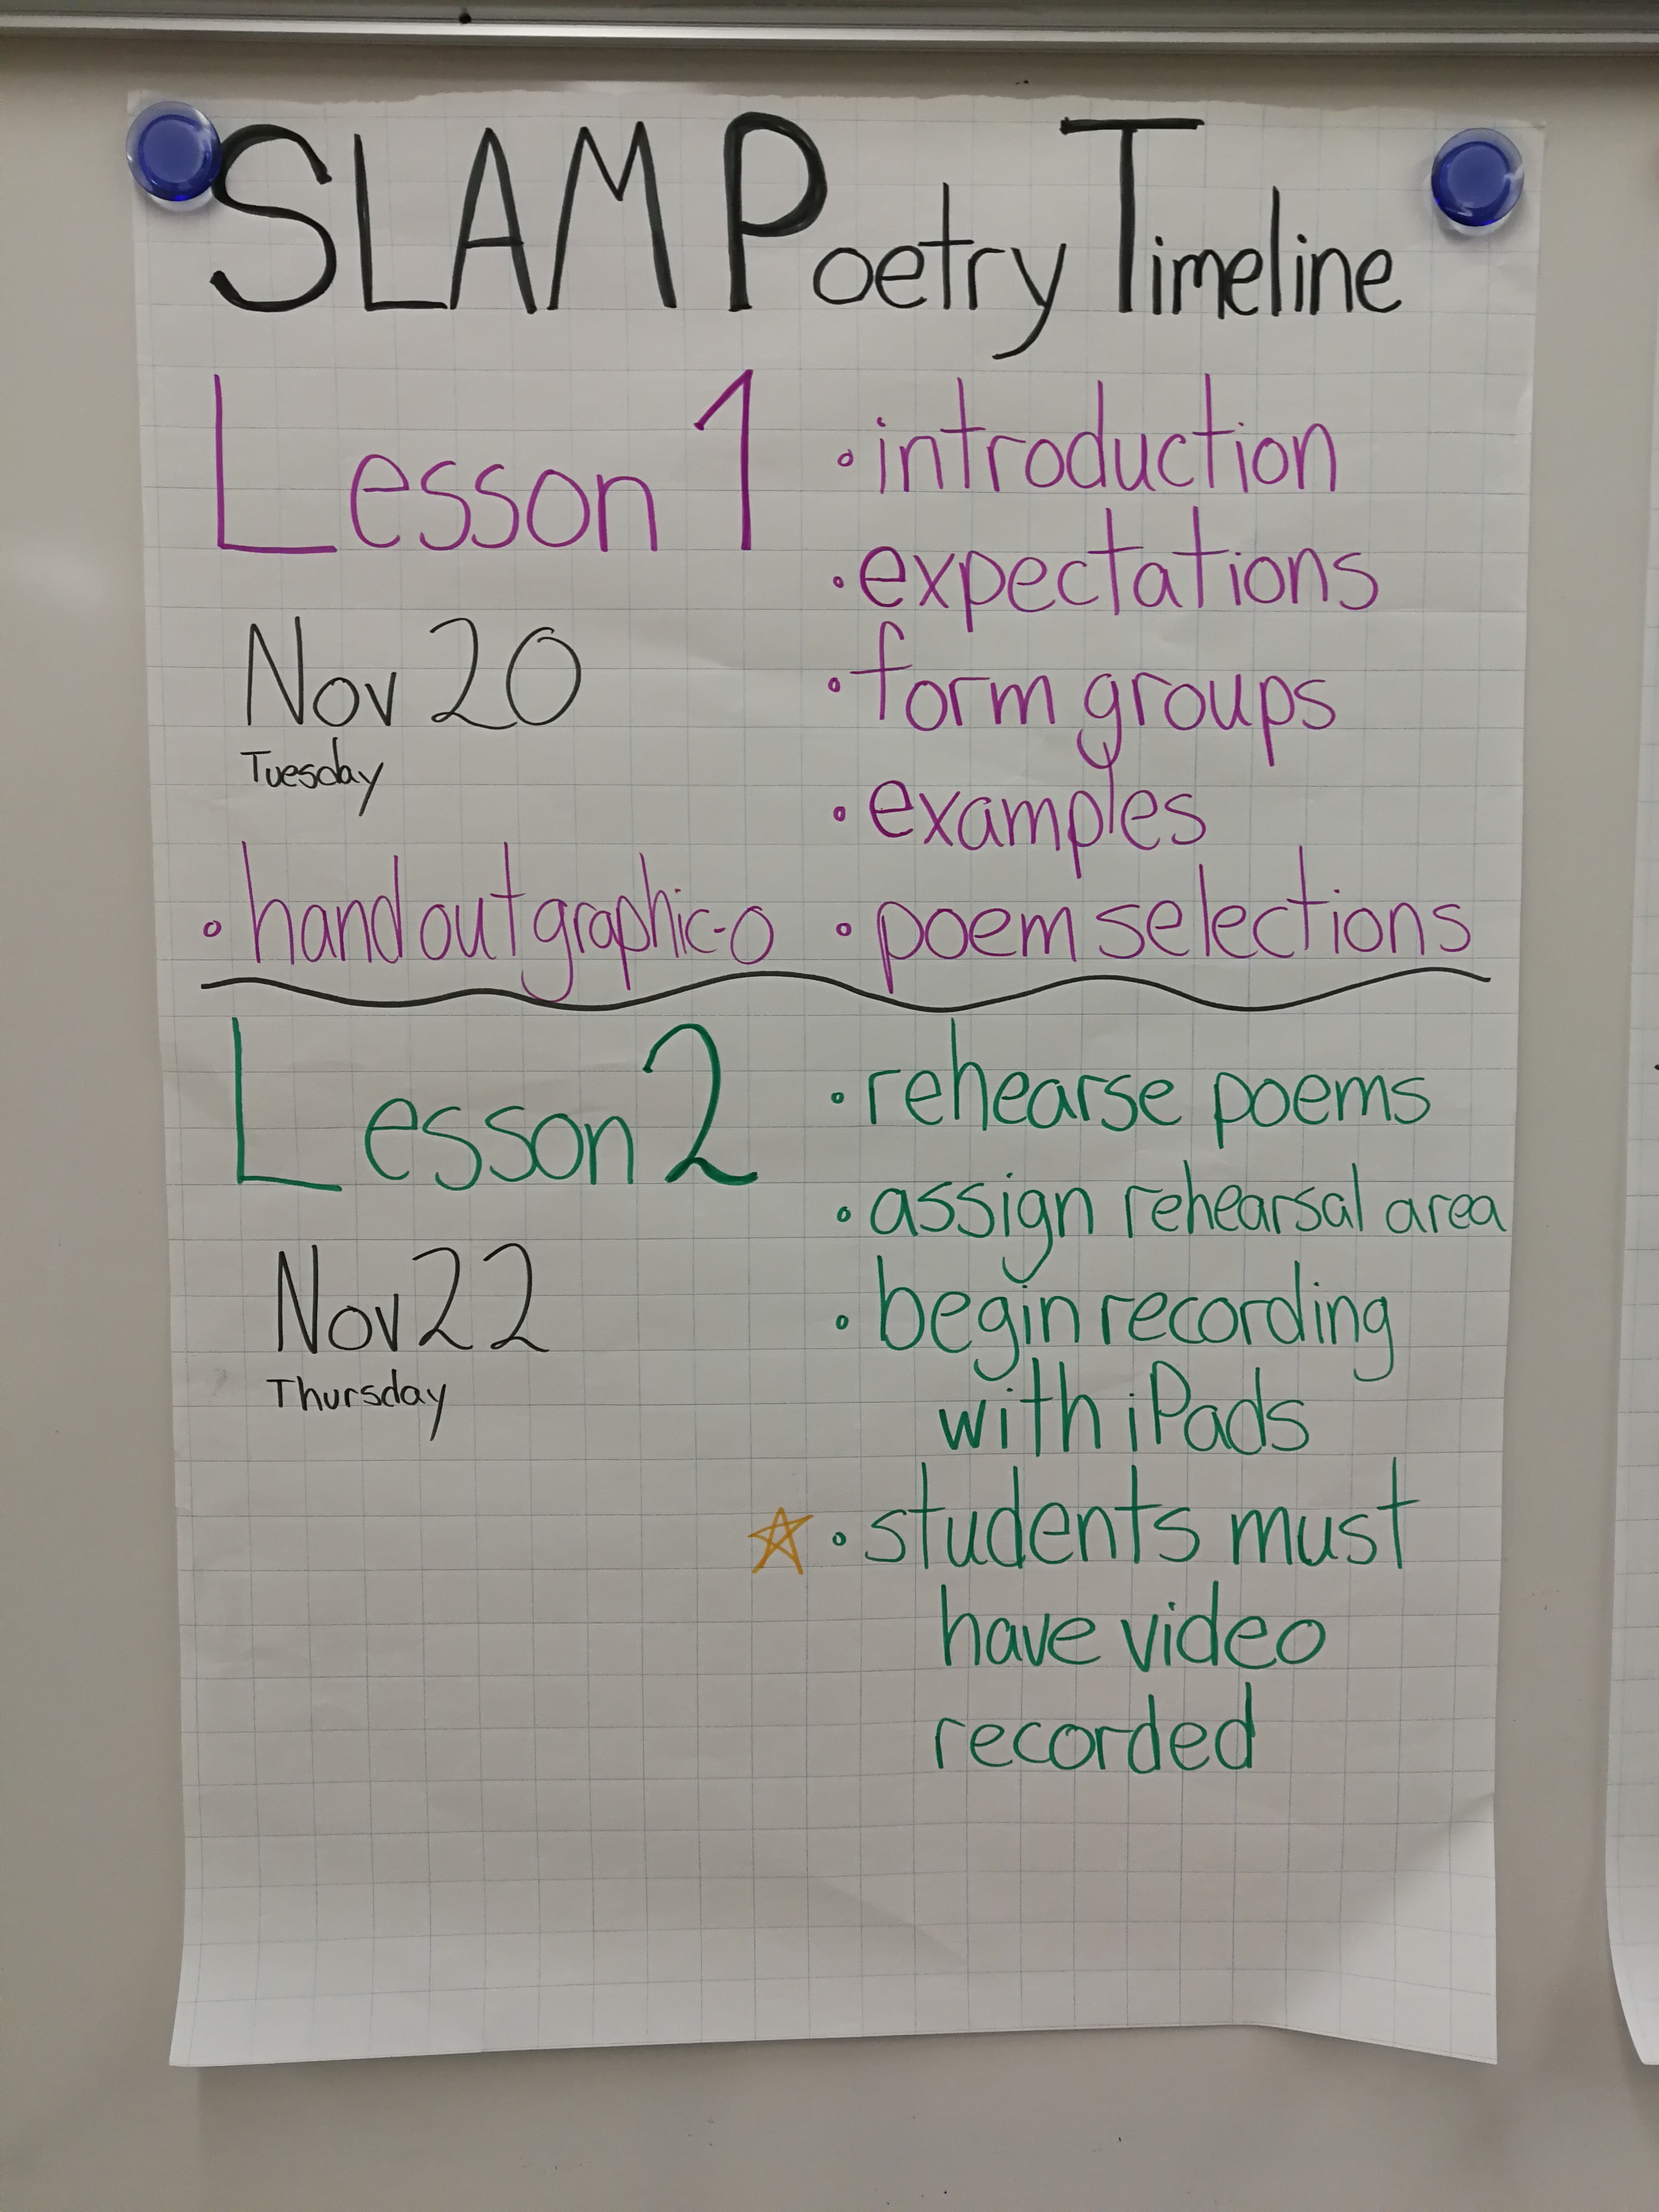 SLAM Poetry Timeline
Lesson 1
Nov 20
Tuesday
• introduction
• expectations
• form groups
• examples
• hand out graphic-o
• poem selections
Lesson 2
Nov 22
Thursday
• rehearse poems
• assign rehearsal area
• begin recording
with iPads
☆ • students must
have video
recorded